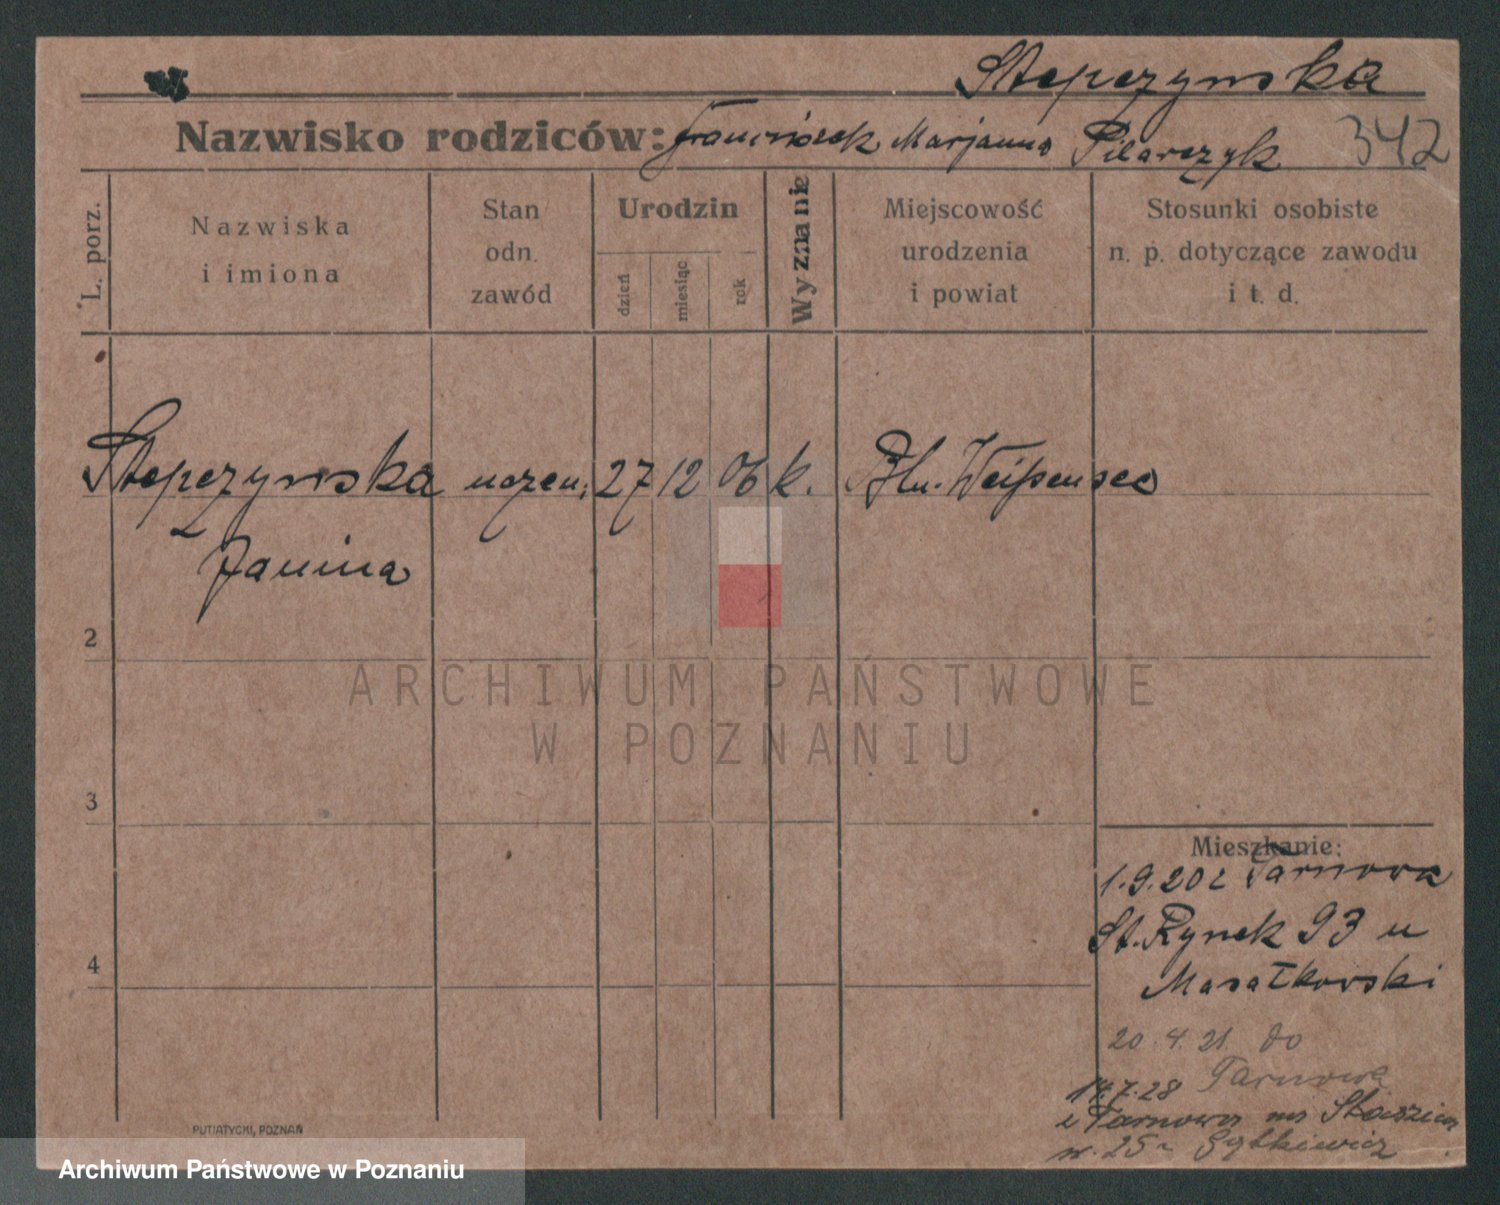 Stepczynska
Nazwisko rodziców: Franciszek Marjanna Pilarczyk 342
L. porz.
Nazwiska
i imiona
Stan
odn.
zawód
Urodzin
dzień
miesiąc
rok
Wyznanie
Miejscowość
urodzenia
i powiat
Stosunki osobiste
n. p. dotyczące zawodu
i t. d.
Stepczynska uczen. 27 12 06 k. Bln. Weißensee
Janina
2
3
4
ARCHIWUM PAŃSTWOWE
W POZNANIU
Mieszkanie:
1.9.20 z Tarnowa
St. Rynek 93 u
Masałkowski
20.4.21 do
Tarnowa
14.7.28
z Tarnowa
25
PUTIATYCKI, POZNAŃ
Archiwum Państwowe w Poznaniu